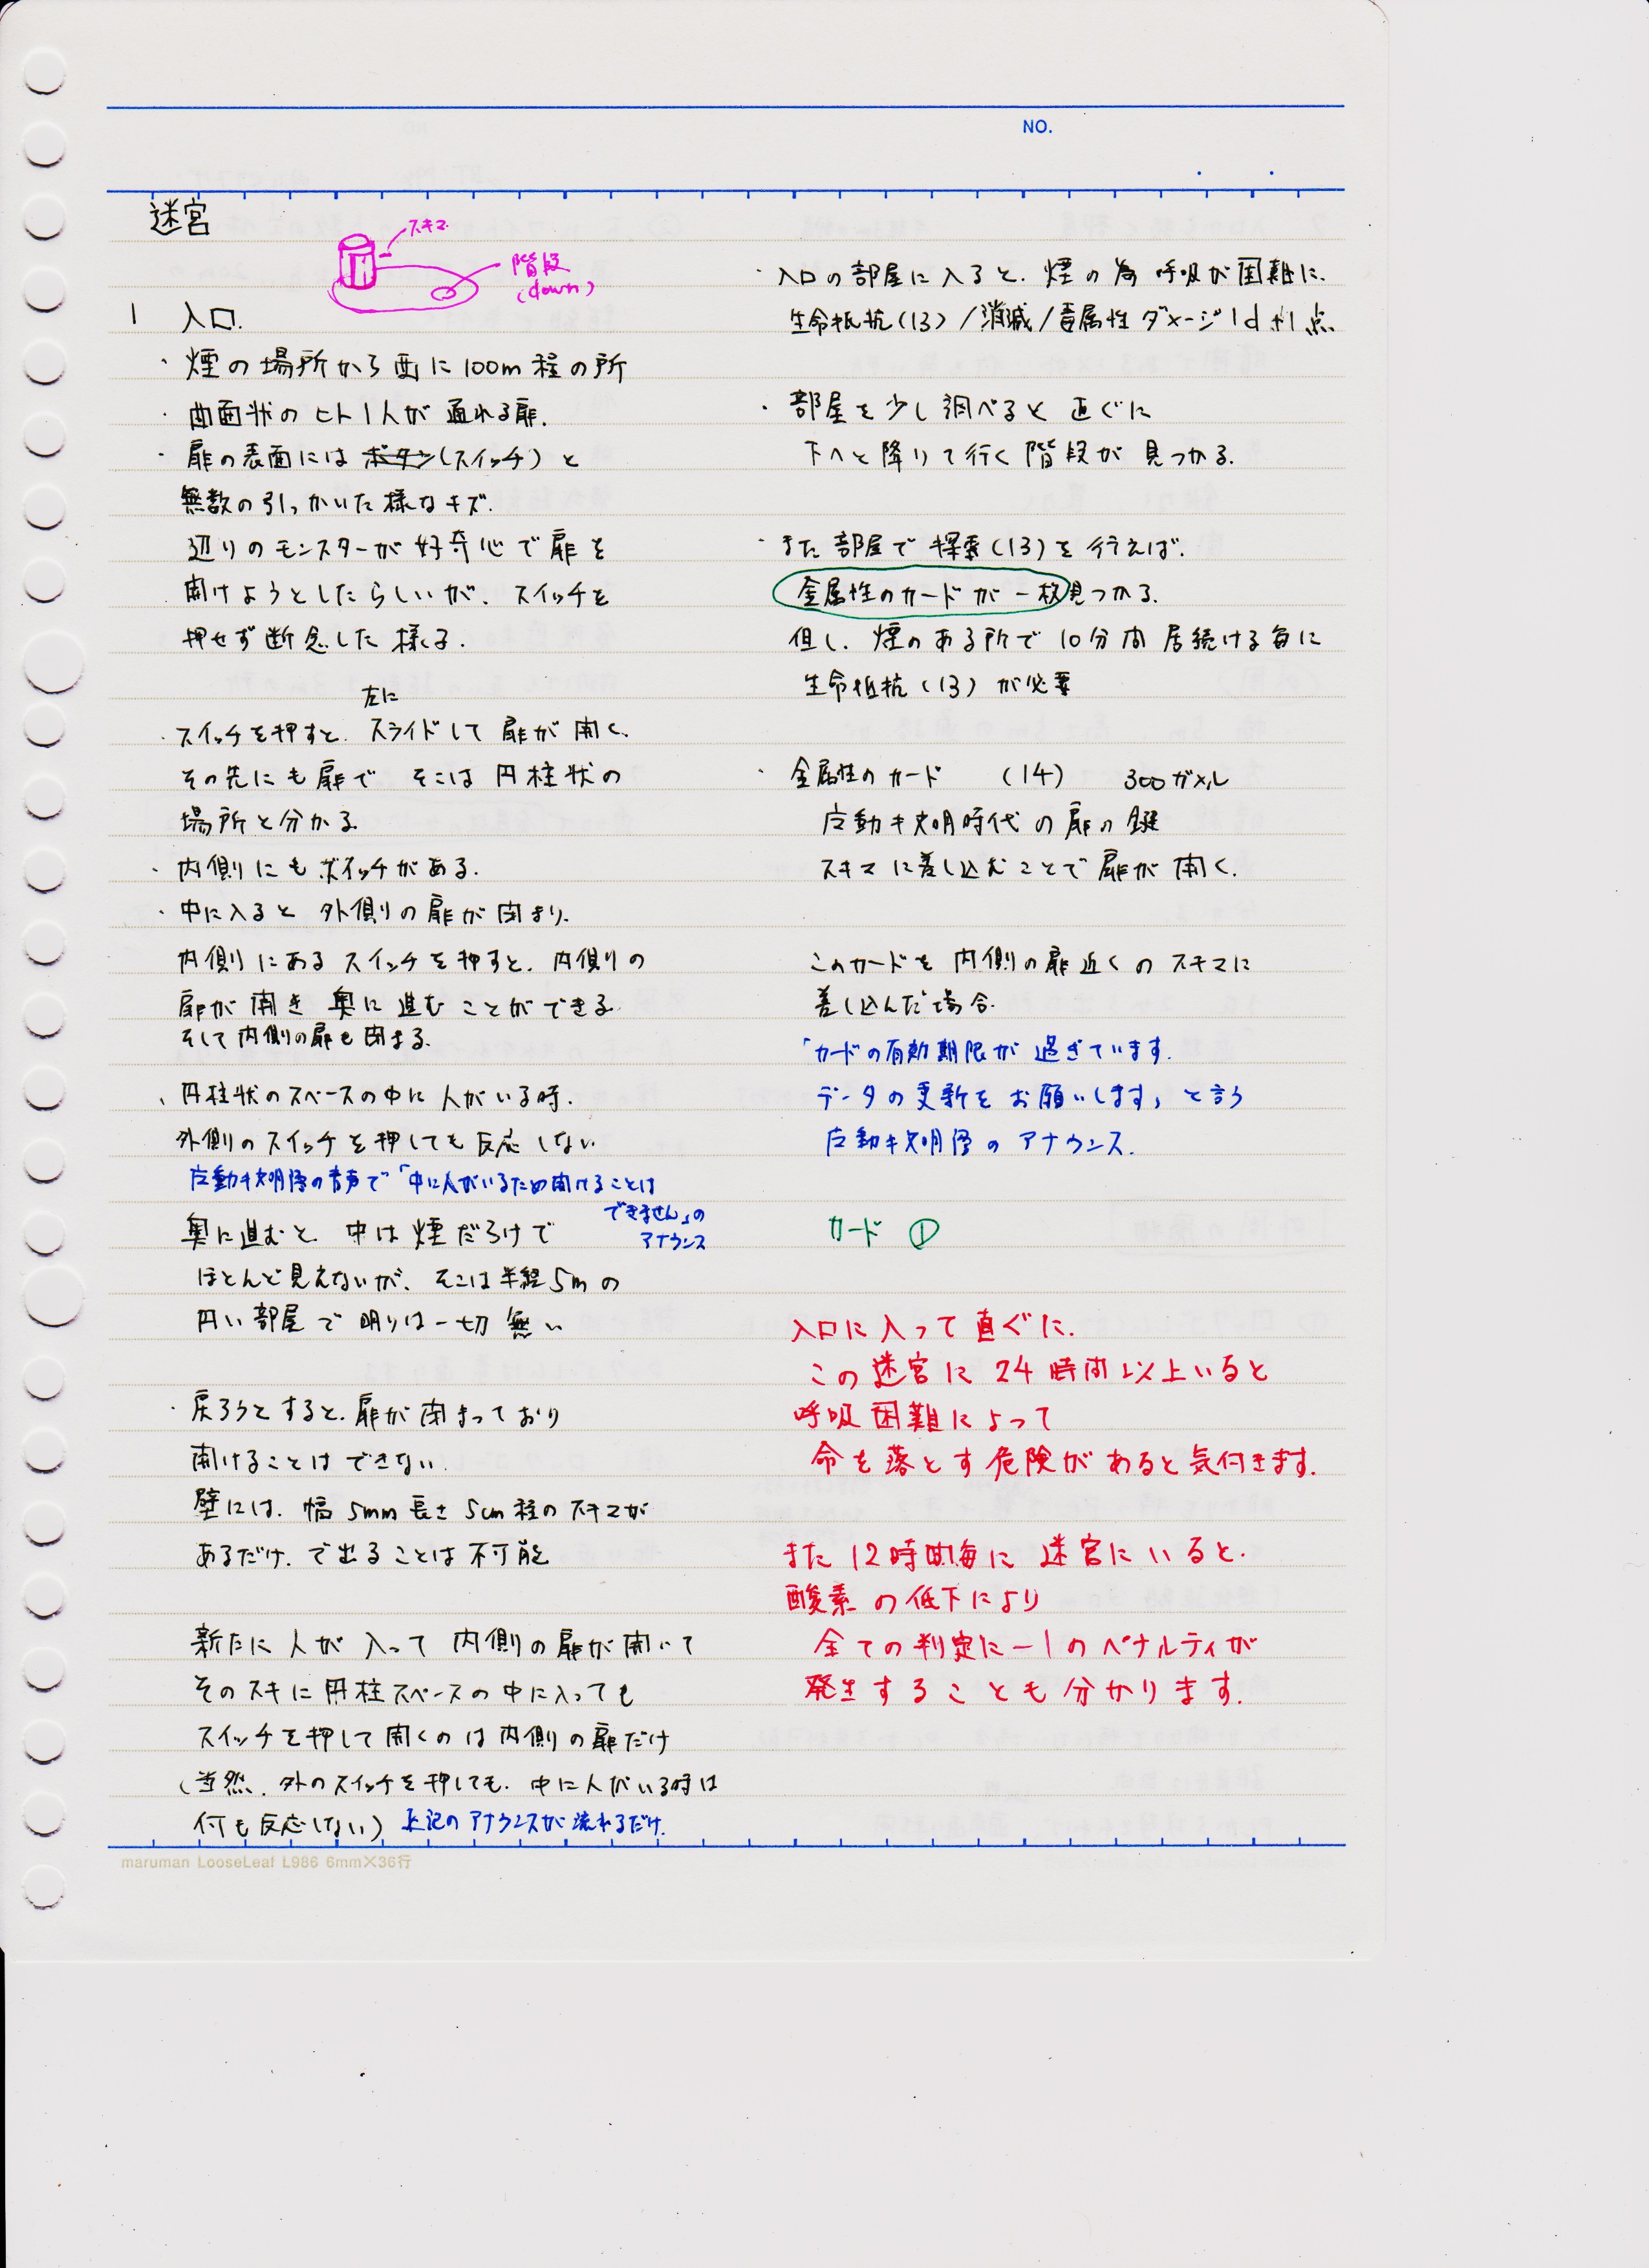 NO.
迷宮
スキマ
階段
(down)
1 入口.
・煙の場所から西に100m程の所
・曲面状のヒト1人が通れる扉.
・扉の表面にはボタン(スイッチ)と
無数の引っかいた様なキズ.
辺りのモンスターが好奇心で扉を
開けようとしたらしいが、スイッチを
押せず断念した様子.
左に
・スイッチを押すと、スライドして扉が開く、
その先にも扉で そこは円柱状の
場所と分かる
・内側にもスイッチがある.
・中に入ると外側の扉が閉まり、
内側にあるスイッチを押すと、内側の
扉が開き奥に進むことができる
そして内側の扉も閉まる.
、円柱状のスペースの中に人がいる時、
外側のスイッチを押しても反応しない
魔動キ文明語の音声で「中に人がいるため開けることは
できません」の
アナウンス
奥に進むと、中は煙だらけで
ほとんど見えないが、そこは半径5mの
円い部屋で明りは一切無い
・戻ろうとすると、扉が閉まっており
開けることはできない.
壁には、幅5mm長さ5cm程のスキマが
あるだけ.で出ることは不可能
新たに人が入って内側の扉が開いて
そのスキに円柱スペースの中に入っても
スイッチを押して開くのは内側の扉だけ
(当然、外のスイッチを押しても、中に人がいる時は
何も反応しない) 上記のアナウンスが流れるだけ.
・入口の部屋に入ると、煙の為呼吸が困難に.
生命抵抗(13)/消滅/毒属性ダメージ1d+1点
・部屋を少し調べると直ぐに
下へと降りて行く階段が見つかる.
・また部屋で探索(13)を行えば、
金属性のカードが一枚見つかる.
但し、煙のある所で10分間居続ける毎に
生命抵抗(13)が必要
・金属性のカード (14) 300ガメル
魔動キ文明時代の扉の鍵
スキマに差し込むことで扉が開く.
このカードを内側の扉近くのスキマに
差し込んだ場合.
「カードの有効期限が過ぎています.
データの更新をお願いします」と言う
魔動キ文明語のアナウンス.
カード ①
入口に入って直ぐに.
この迷宮に24時間以上いると
呼吸困難によって
命を落とす危険があると気付きます.
また12時間毎に迷宮にいると.
酸素の低下により
全ての判定に-1のペナルティが
発生することも分かります.
maruman LooseLeaf L986 6mm×36行